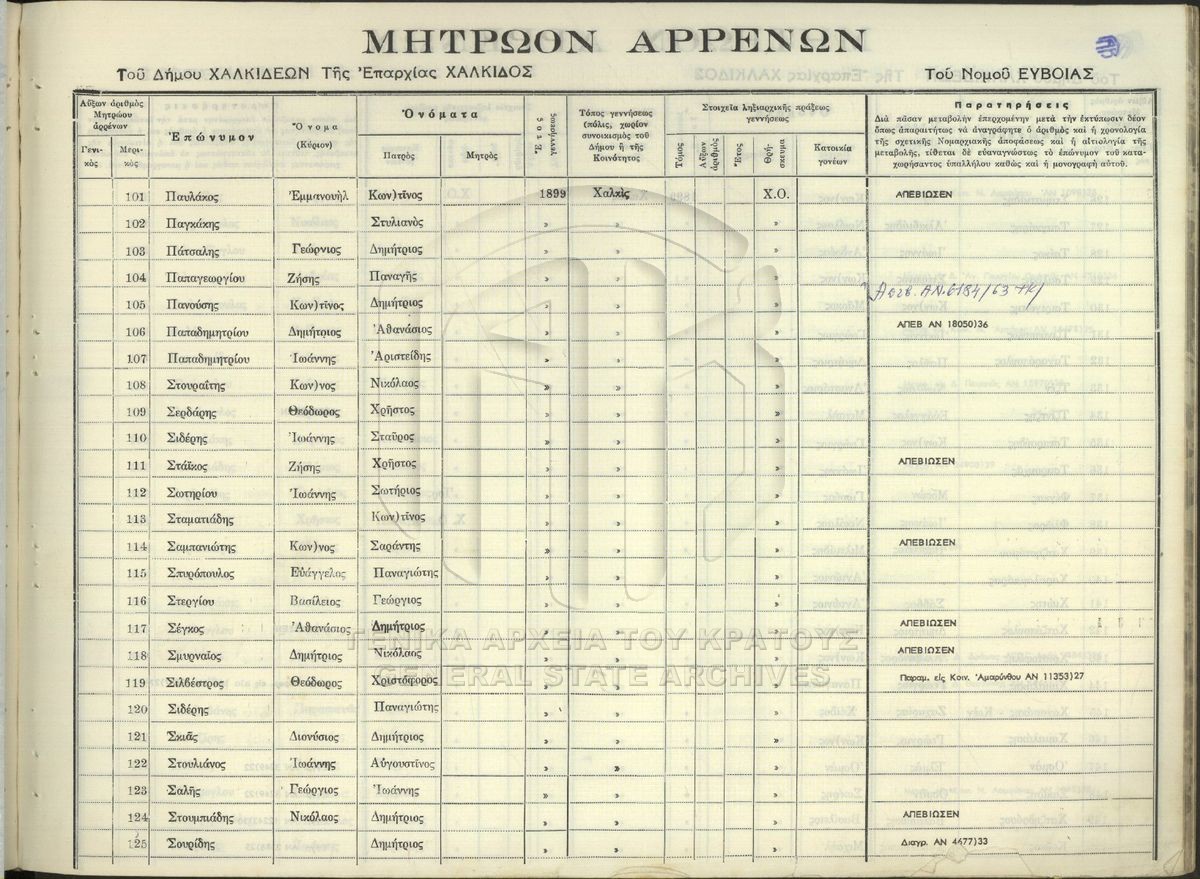 ΜΗΤΡΩΟΝ ΑΡΡΕΝΩΝ
Τοῦ Δήμου ΧΑΛΚΙΔΕΩΝ Τῆς Ἐπαρχίας ΧΑΛΚΙΔΟΣ Τοῦ Νομοῦ ΕΥΒΟΙΑΣ
Αὔξων ἀριθμὸς Μητρώου ἀρρένων
Γενικὸς Μερικὸς
Ἐπώνυμον
Ὄνομα (Κύριον)
Ὀνόματα
Πατρὸς Μητρὸς
Ἔτος γεννήσεως
Τόπος γεννήσεως (πόλις, χωρίον συνοικισμὸς τοῦ Δήμου ἢ τῆς Κοινότητος
Στοιχεῖα ληξιαρχικῆς πράξεως γεννήσεως
Τόμος Αὔξων ἀριθμὸς Ἔτος Θρήσκευμα Κατοικία γονέων
Παρατηρήσεις
Διὰ πᾶσαν μεταβολὴν ἐπερχομένην μετὰ τὴν ἐκτύπωσιν δέον
ὅπως ἀπαραιτήτως νὰ ἀναγράφητε ὁ ἀριθμὸς καὶ ἡ χρονολογία
τῆς σχετικῆς Νομαρχιακῆς ἀποφάσεως καὶ ἡ αἰτιολογία τῆς
μεταβολῆς, τίθεται δὲ εὐαναγνώστως τὸ ἐπώνυμον τοῦ κατα-
χωρήσαντος ὑπαλλήλου καθὼς καὶ ἡ μονογραφὴ αὐτοῦ.
101 Παυλάκος Ἐμμανουὴλ Κων)τῖνος 1899 Χαλκὶς Χ.Ο. ΑΠΕΒΙΩΣΕΝ
102 Παγκάκης Στυλιανὸς » » »
103 Πάτσαλης Γεώρνιος Δημήτριος » » »
104 Παπαγεωργίου Ζήσης Παναγῆς » » »
105 Πανούσης Κων)τῖνος Δημήτριος » » » ΑΝ.6184/63
106 Παπαδημητρίου Δημήτριος Ἀθανάσιος » » » ΑΠΕΒ ΑΝ 18050)36
107 Παπαδημητρίου Ἰωάννης Ἀριστείδης » » »
108 Στουραΐτης Κων)νος Νικόλαος » » »
109 Σερδάρης Θεόδωρος Χρῆστος » » »
110 Σιδέρης Ἰωάννης Σταῦρος » » »
111 Στάϊκος Ζήσης Χρῆστος » » » ΑΠΕΒΙΩΣΕΝ
112 Σωτηρίου Ἰωάννης Σωτήριος » » »
113 Σταματιάδης Κων)τῖνος » » »
114 Σαμπανιώτης Κων)νος Σαράντης » » » ΑΠΕΒΙΩΣΕΝ
115 Σπυρόπουλος Εὐάγγελος Παναγιώτης » » »
116 Στεργίου Βασίλειος Γεώργιος » » »
117 Σέγκος Ἀθανάσιος Δημήτριος » » » ΑΠΕΒΙΩΣΕΝ
118 Σμυρναῖος Δημήτριος Νικόλαος » » » ΑΠΕΒΙΩΣΕΝ
119 Σιλβέστρος Θεόδωρος Χριστόφορος » » » Παραμ. εἰς Κοιν. Ἀμαρύνθου ΑΝ 11353)27
120 Σιδέρης Παναγιώτης » » »
121 Σκιᾶς Διονύσιος Δημήτριος » » »
122 Στουλιάνος Ἰωάννης Αὐγουστῖνος » » »
123 Σαλῆς Γεώργιος Ἰωάννης » » »
124 Στουμπιάδης Νικόλαος Δημήτριος » » » ΑΠΕΒΙΩΣΕΝ
125 Σουρίδης Δημήτριος » » » Διαγρ. ΑΝ 4677)33
ΓΕΝΙΚΑ ΑΡΧΕΙΑ ΤΟΥ ΚΡΑΤΟΥΣ
GENERAL STATE ARCHIVES